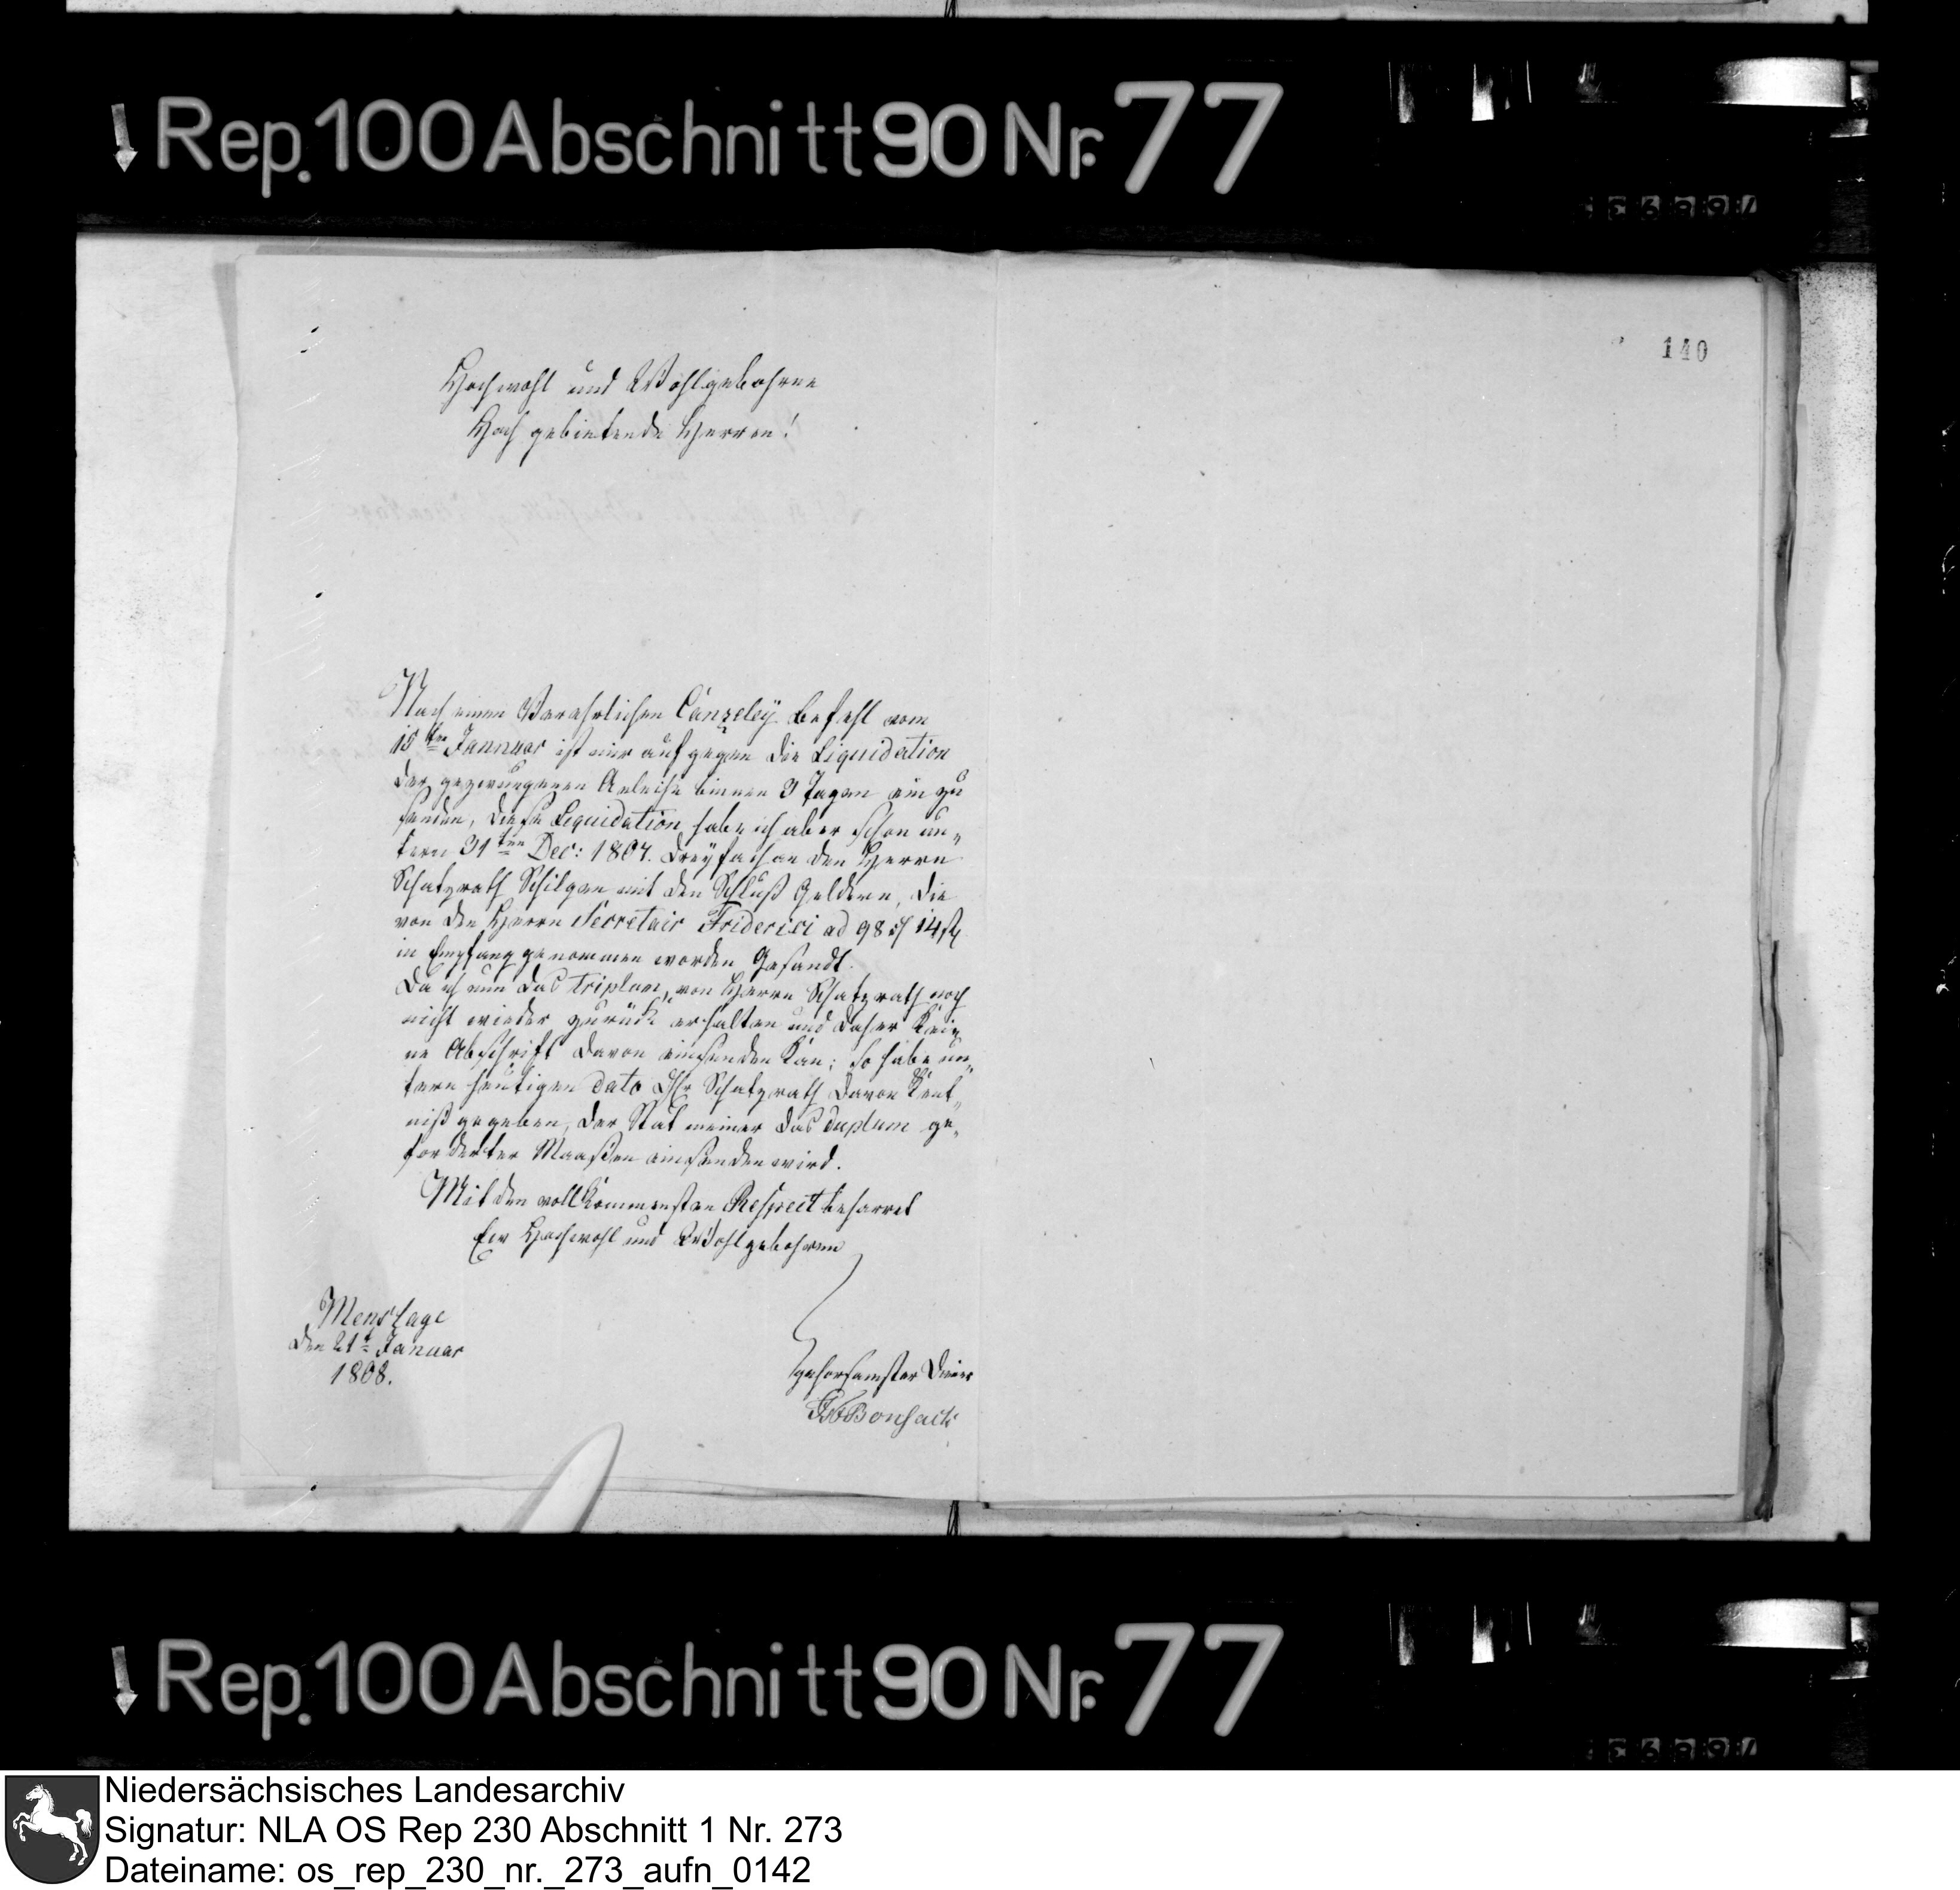 Rep. 100 Abschnitt 90 Nr. 77
140
Hochwohl und Wohlgebohrne
Hoch gebietende Herren!
Nach einen Verehrlichen Canzeley befehl vom
15ten Januar ist mir auf gegen die Liquidation
der gezwungenen Anleihe binnen 3 Tagen ein zu
senden, diese Liquidation habe ich aber schon un„
tern 31ten Dec: 1807. dreyfach an den Herrn
Schatzrath Schilgen mit den Schluß Geldern, die
von den Herrn Secretair Friderici ad 98 14
in Empfang genommen worden Gesandt.
Da ich nun das triplum, von Herrn Schatzrath noch
nicht wieder zurück erhalten und daher Kei„
ne Abschrift davon einsenden Kan; so habe un„
tern heutigen dato H. Schatzrath davon Kent„
niß gegeben, der Stat meiner das duplum ge„
forderter Maaßen einsenden wird.
Mit den vollkommensten Respect beharret
Ew Hochwohl und Wohlgebohren
Menslage
den 21t Januar
1808.
gehorsamster Diener
Bonsack
Rep. 100 Abschnitt 90 Nr. 77
Niedersächsisches Landesarchiv
Signatur: NLA OS Rep 230 Abschnitt 1 Nr. 273
Dateiname: os_rep_230_nr._273_aufn_0142